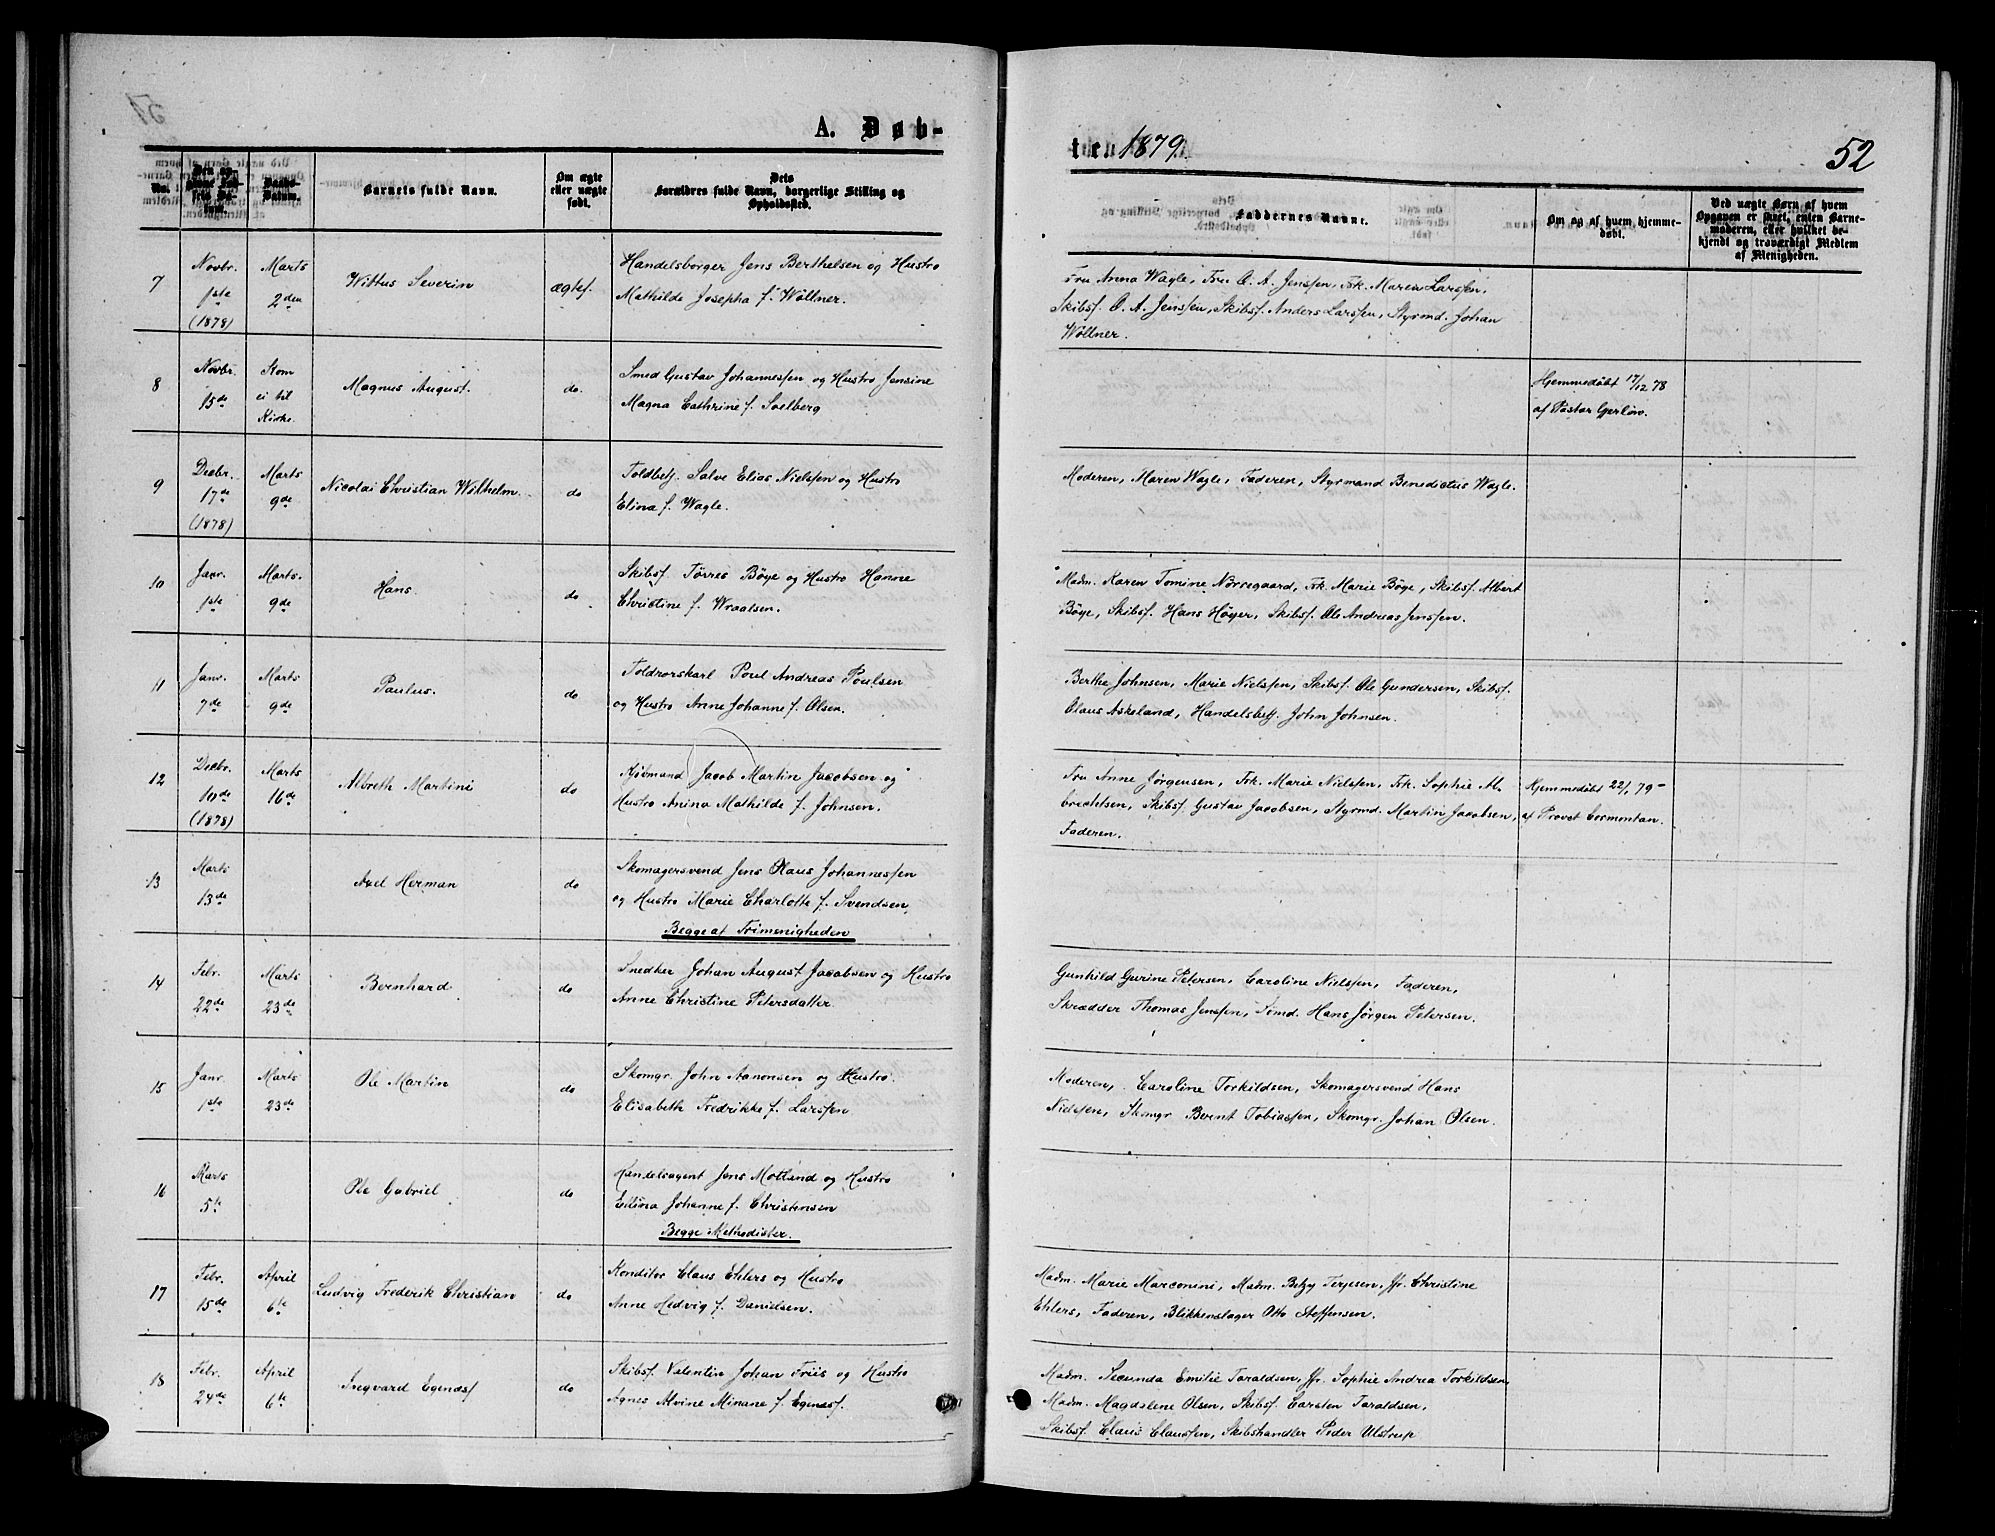 A. Døb-
No.
Barnets fulde Navn.
Om ægte
eller uægte
født.
Dets
Forældres fulde Navn, borgerlige Stilling og
Opholdssted.
7
Novbr.
1ste
(1878)
Marts
2den
Wittus Severin
ægtef.
Handelsborger Jens Berthelsen og Hustro
Mathilde Josepha f. Wollner.
8
Novbr.
15de
Kom
ei til
Kirke.
Magnus August.
do.
Smed Gustav Johannessen og Hustro Jensine
Magna Cathrine f. Soelberg
9
Decbr.
17de
(1878)
Marts
9de
Nicolai Christian Wilhelm.
do
Toldbetj. Salve Elias Nielssen og Hustro
Elina f. Wagle.
10
Janr.
1ste
Marts.
9de
Hans.
do.
Skibsf. Tørres Bøye og Hustro Hanne
Christine f. Wraalsen.
11
Janr.
7de
Marts
9de
Paulus.
do
Toldrorskarl Poul Andreas Poulsen
og Hustro Anne Johanne f. Olsen.
12
Decbr.
10de
(1878)
Marts
16de
Albreth Martini
do
Kjøbmand Jacob Martin Jacobsen og
Hustro Anina Mathilde f. Johnsen.
13
Marts
13de
Axel Herman
do
Skomagersvend Jens Olaus Johannessen
og Hustro Marie Charlotte f. Svendsen,
Begge af Frimenigheden
14
Febr.
22de
Marts
23de
Bernhard
do
Snedker Johan August Jacobsen og Hustro
Anne Christine Petersdatter
15
Janr.
1ste
Marts
23de
Ole Martin
do
Skomgr. John Aanonsen og Hustro.
Elisabeth Fredrikke f. Larssen
16
Marts
5te
Ole Gabriel
do
Handelsagent Jens Motland og Hustro
Elina Johanne f. Christensen
Begge Methodister.
17
Febr.
15de
April
6te
Ludvig Frederik Christian
do
Konditor Claus Ehlers og Hustro
Anne Hedvig f. Danielsen.
18
Febr.
24de
April
6te
Ingvard Egenæs
do
Skibsf. Valentin Johan Friis og Hustro
Agnes Alvine Minane f. Egenæs.
te 1879.
52
Faddernes Navne.
Om og af hvem hjemme-
døbt.
Ved uægte Børn af hvem
Opgaven er skeet, enten Barne-
moderen, eller hvilket be-
kjendt og troværdigt Medlem
af Menigheden.
Fru Anna Wagle, Fru O. A. Jenssen, Frk. Maren Larssen,
Skibsf. O. A. Jenssen, Skibsf. Anders Larssen, Styrmd. Johan
Wollner.
Hjemmedøbt 17/12 78
af Pastor Gerløw.
Moderen, Maren Wagle, Faderen, Styrmand Benedictus Wagle.
Madm. Karen Tomine Nørsegaard, Frk. Marie Bøye, Skibsf. Albert
Bøye, Skibsf. Hans Høyer, Skibsf. Ole Andreas Jenssen.
Berthe Johnsen, Marie Nielssen, Skibsf. Ole Gundersen, Skibsf.
Olaus Askeland, Handelsbetj. John Johnsen.
Fru Anne Jørgensen, Frk. Marie Nielsen, Frk. Sophie Al-
brechtsen, Skibsf. Gustav Jacobsen, Styrmd. Martin Jacobsen,
Faderen.
Hjemmedøbt 22/1 79
af Provst Cormontan.
Gunhild Gurine Petersen, Caroline Nielssen, Faderen,
Skrædder Thomas Jenssen, Tømd. Hans Jørgen Petersen.
Moderen, Caroline Torkildsen, Skomagersvend Hans
Nielssen, Skomgr Bernt Tobiassen, Skomgr. Johan Olsen.
Madm. Marie Marconini, Madm. Betzy Terjesen, Jfr. Christine
Ehlers, Faderen, Blikkenslager Otto Steffensen.
Madm. Secunda Emilie Taraldsen, Jfr. Sophie Andrea Torkildsen,
Madm. Magdalene Olsen, Skibsf. Carsten Taraldsen,
Skibsf. Claus Claussen, Skibshandler Peder Ulstrup